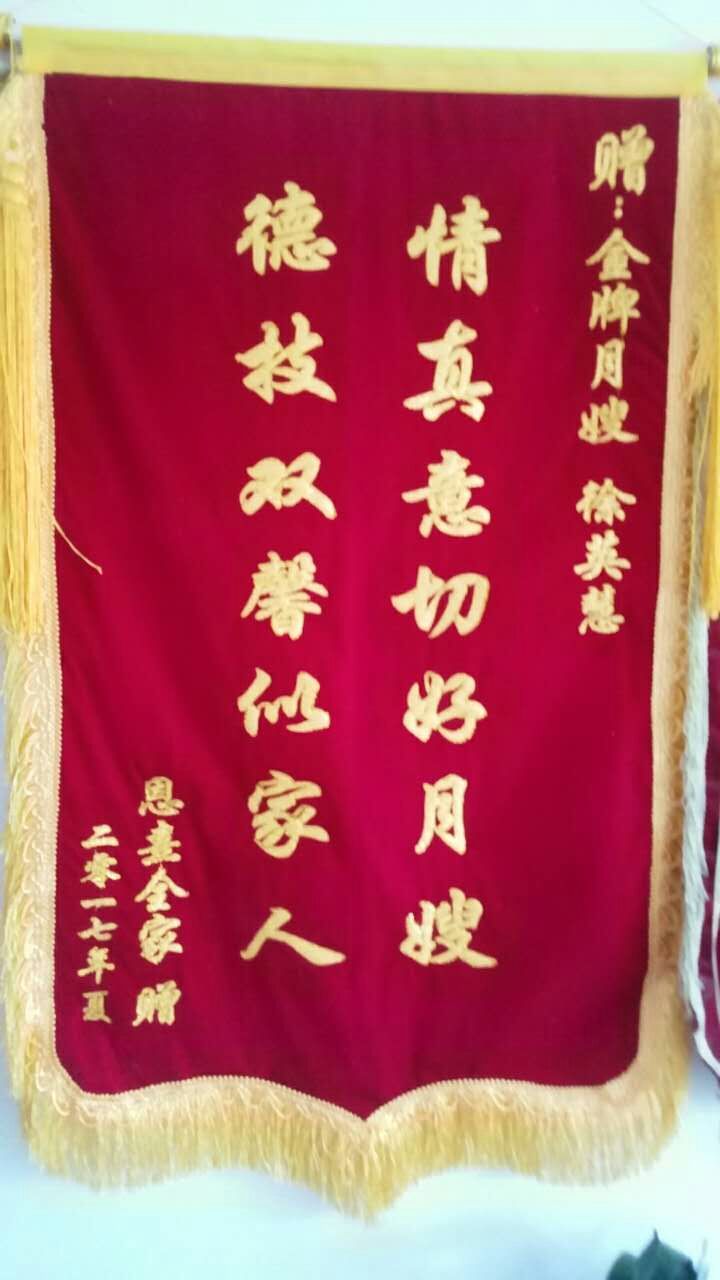 赠:金牌月嫂 徐英慧
情真意切好月嫂
德技双馨似家人
恩熹全家 赠
二零一七年夏